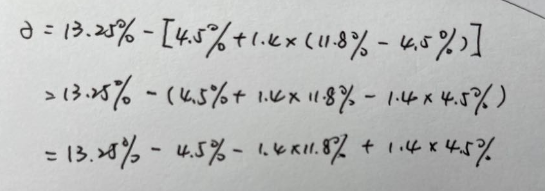 ∂ = 13.25% - [4.5% + 1.4 × (11.8% - 4.5%)]
= 13.25% - (4.5% + 1.4 × 11.8% - 1.4 × 4.5%)
= 13.25% - 4.5% - 1.4 × 11.8% + 1.4 × 4.5%